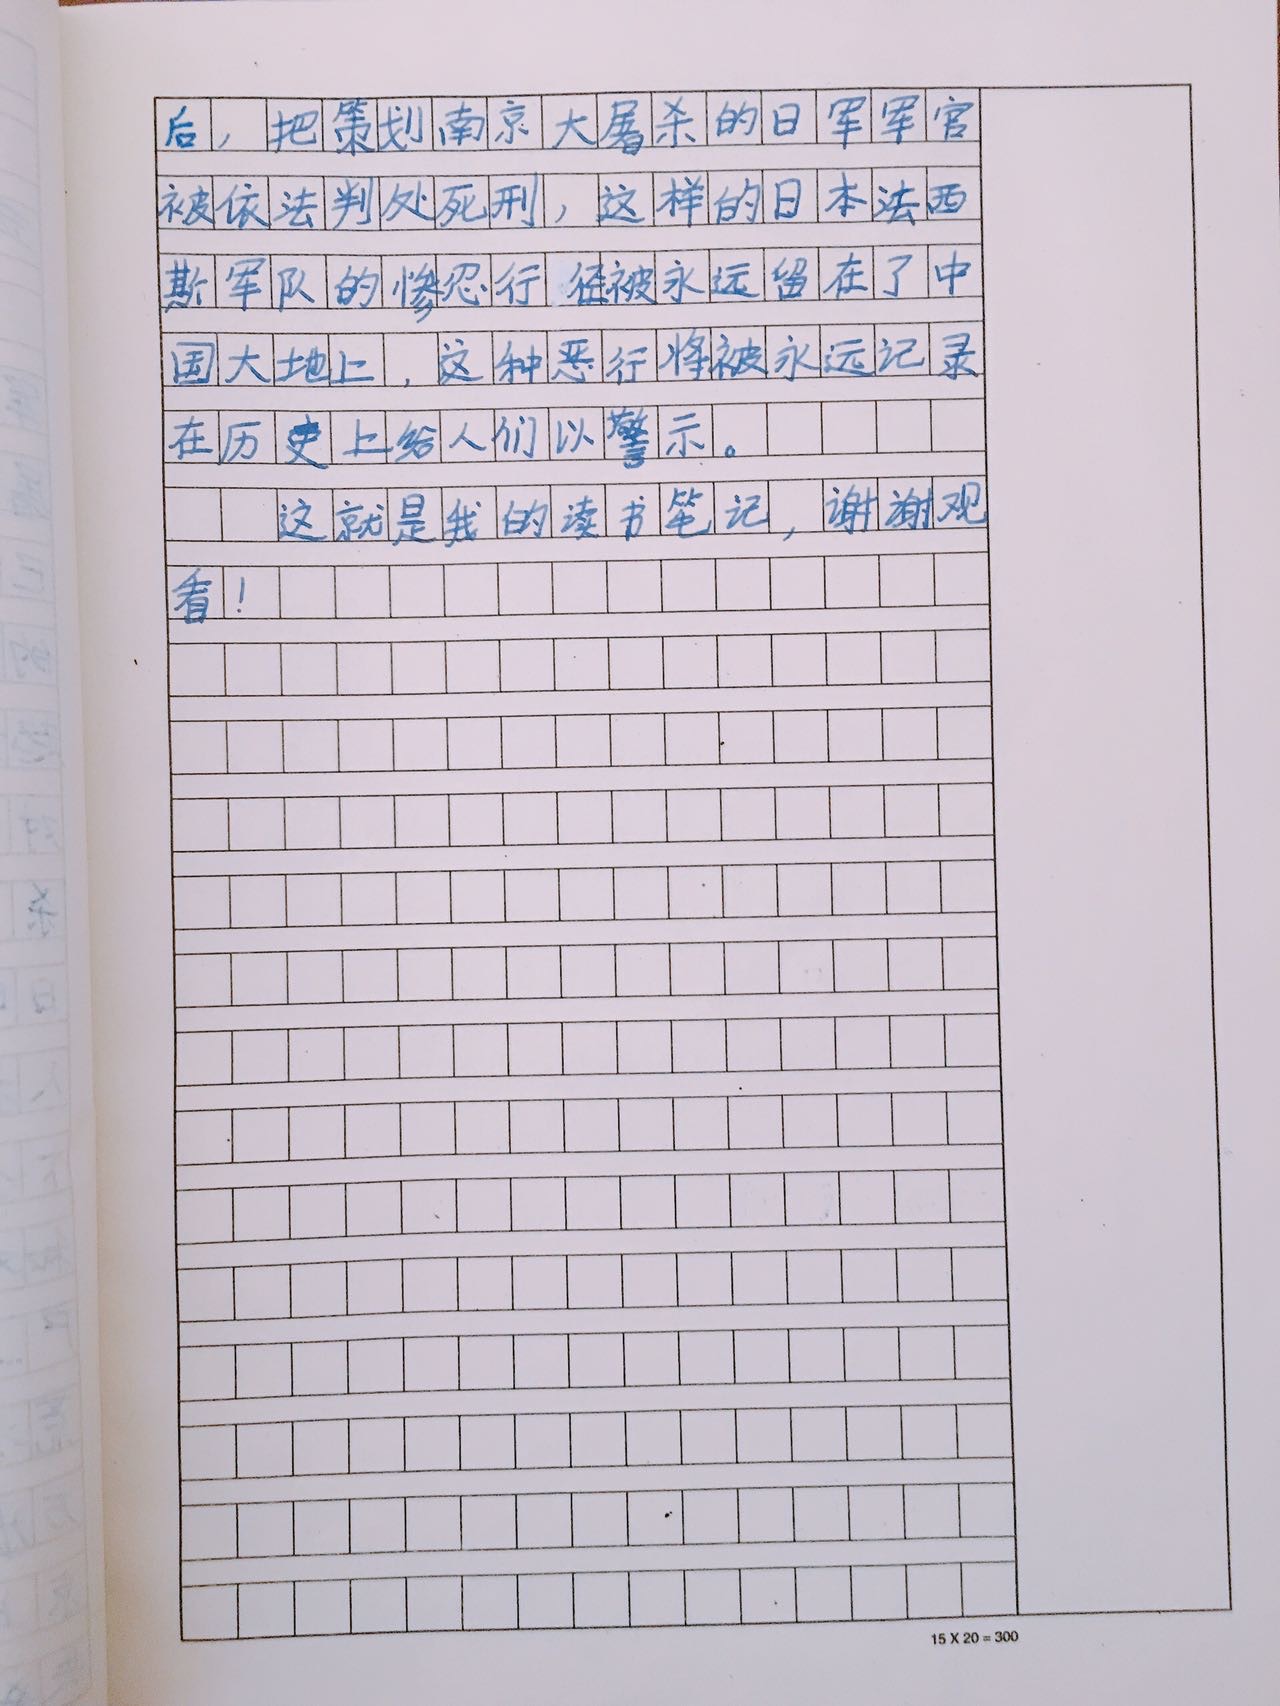 后，把策划南京大屠杀的日军军官
被依法判处死刑，这样的日本法西
斯军队的惨忍行径被永远留在了中
国大地上，这种恶行将被永远记录
在历史上给人们以警示。
这就是我的读书笔记，谢谢观
看！
15 X 20 = 300